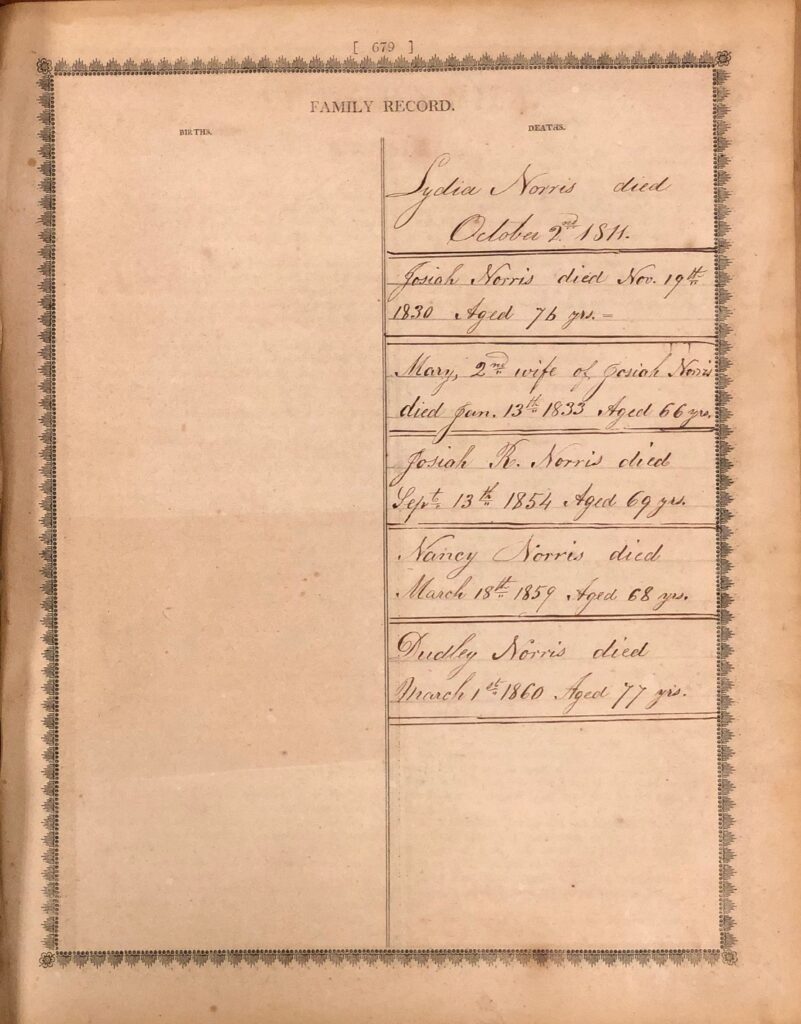 [ 679 ]
FAMILY RECORD.
BIRTHS.
DEATHS.
Lydia Norris died
October 2nd 1811.
Josiah Norris died Nov. 19th
1830 Aged 76 yrs. =
Mary, 2nd wife of Josiah Norris
died Jan. 13th 1833 Aged 66 yrs.
Josiah K. Norris died
Sept. 13th 1854 Aged 69 yrs.
Nancy Norris died
March 18th 1859 Aged 68 yrs.
Dudley Norris died
March 1st 1860 Aged 77 yrs.